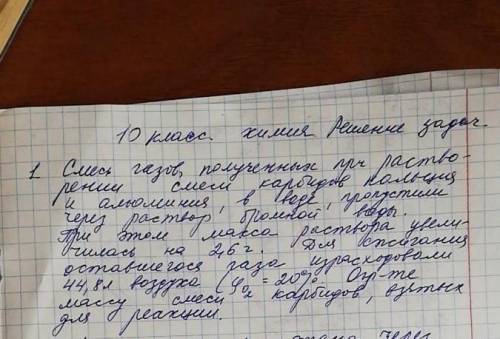 10 класс. химия Решение задач.
1 Смесь газов, полученных при раство-
рении смеси карбидов кальция
и алюминия, в воде, пропустили
через раствор бромной воды.
При этом масса раствора увели-
чилась на 2,6 г. Для сжигания
оставшегося газа израсходовали
44,8 л воздуха (φO₂ = 20%. Опр-те
массу смеси карбидов, взятых
для реакции.
через